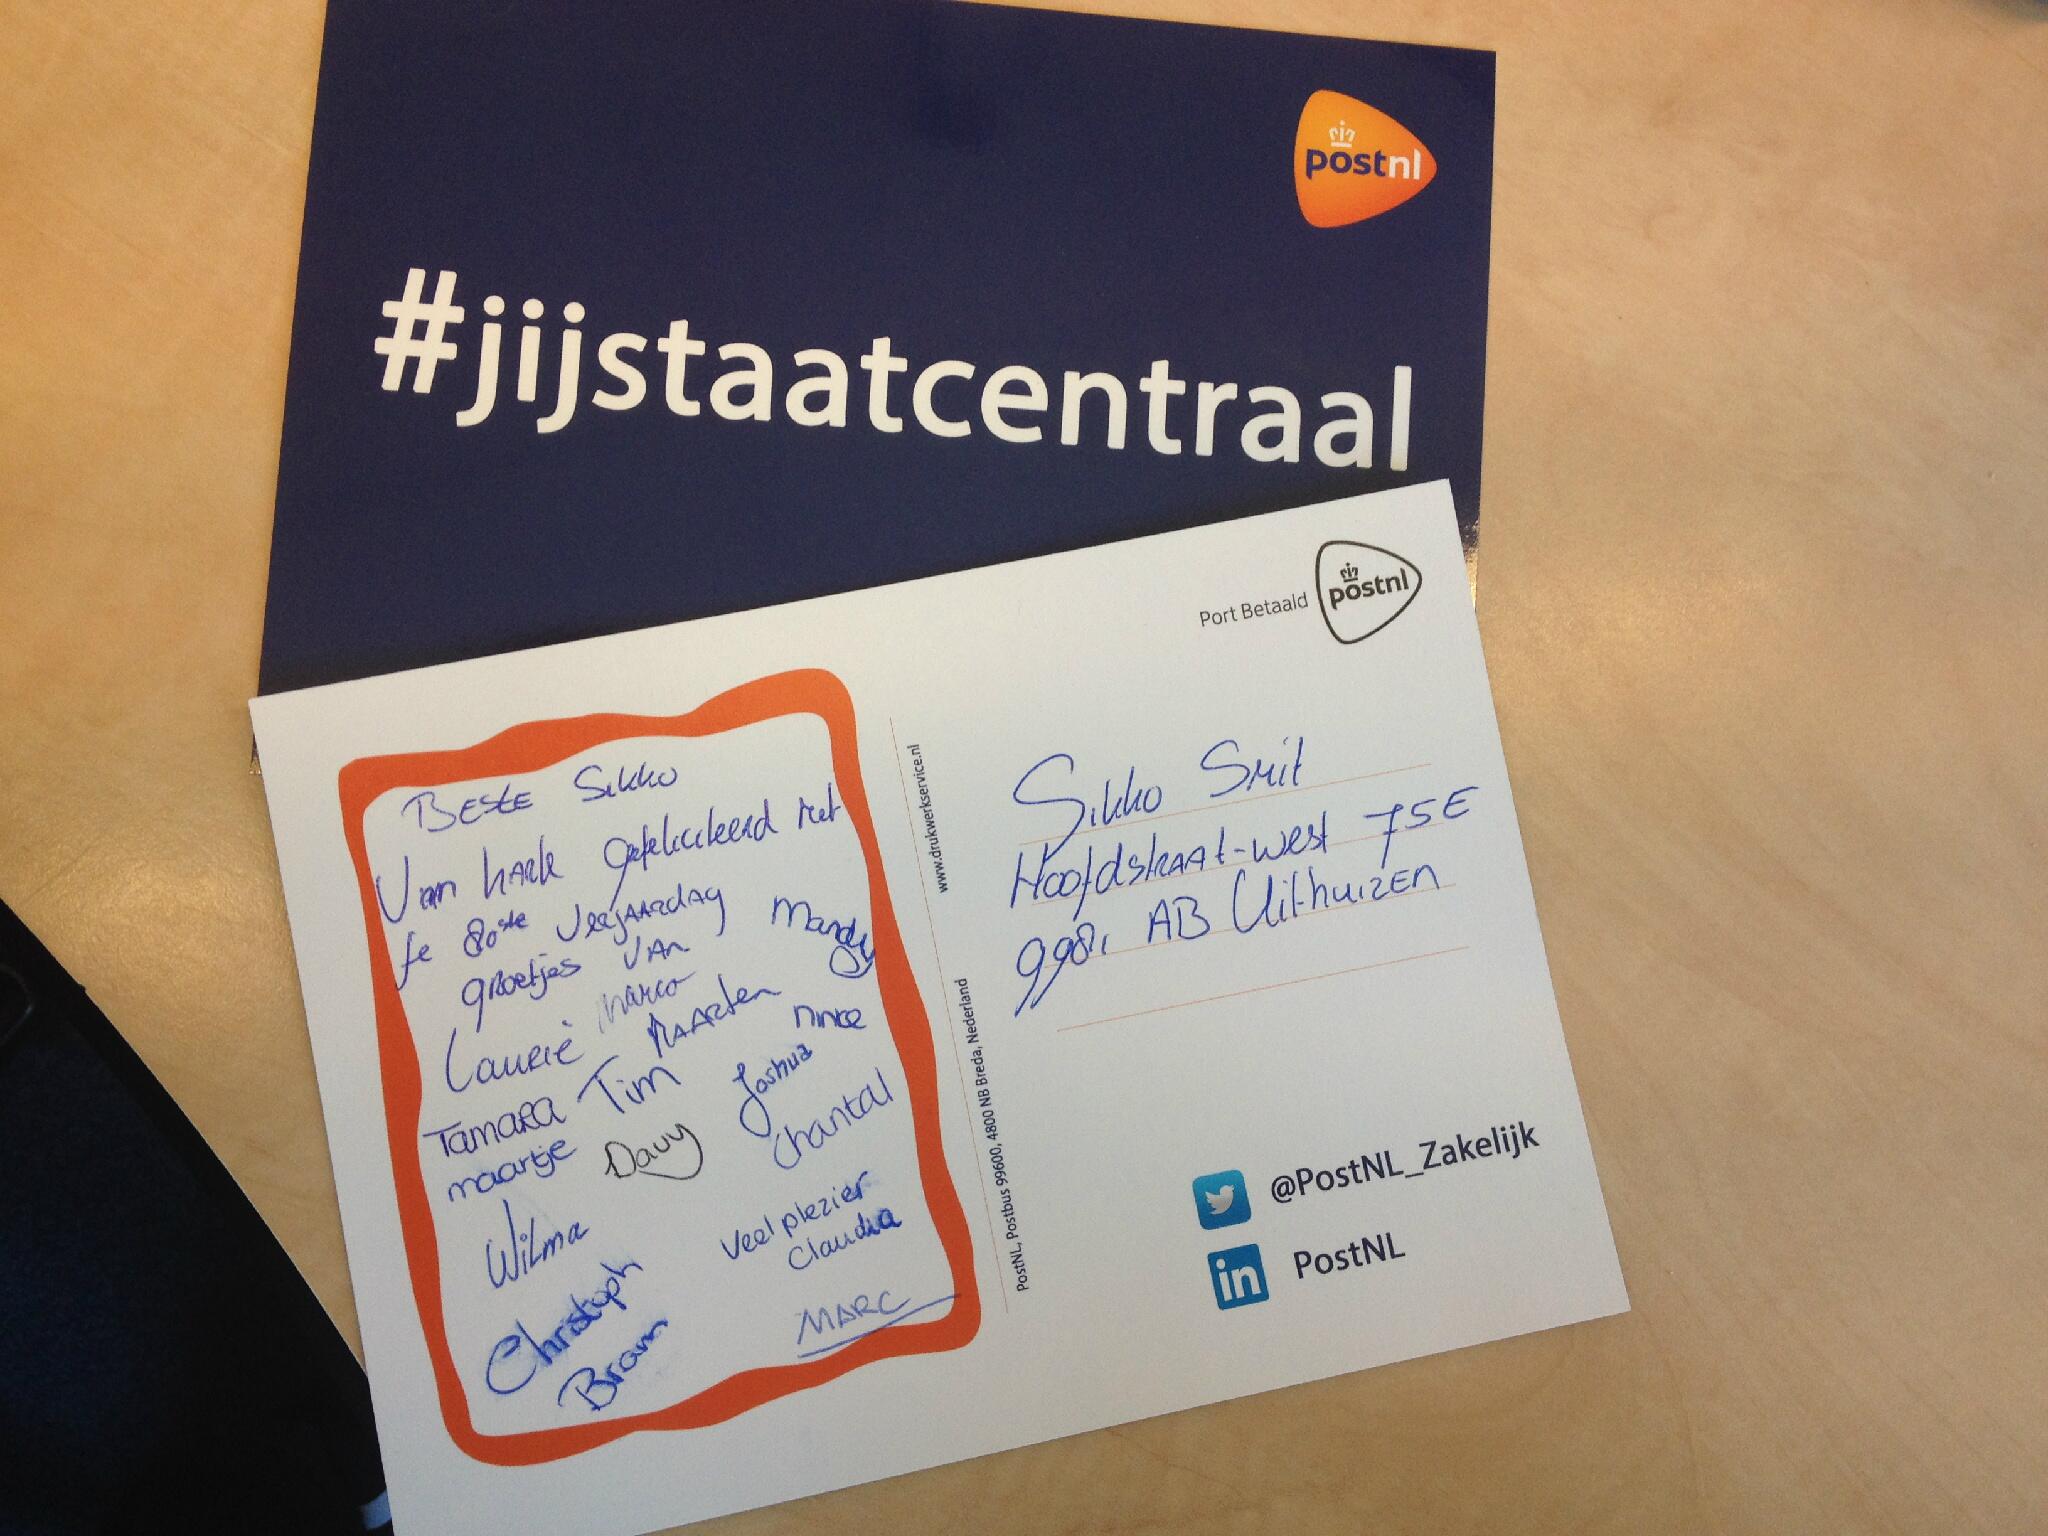 postnl
#jijstaatcentraal
Port Betaald postnl
BESTE Sikko
Van harte gefeliciteerd met
je 80ste verjaardag
groetjes van
Mandy
Marco
Laurie
Maarten
Tim
Joshua
Tamara
maartje
Davy
Chantal
Wilma
Veel plezier
Claudia
Christoph
Bram
MARC
www.drukwerkservice.nl
PostNL, Postbus 99600, 4800 NB Breda, Nederland
Sikko Smit
Hoofdstraat-west 75E
9981 AB Uithuizen
@PostNL_Zakelijk
in PostNL